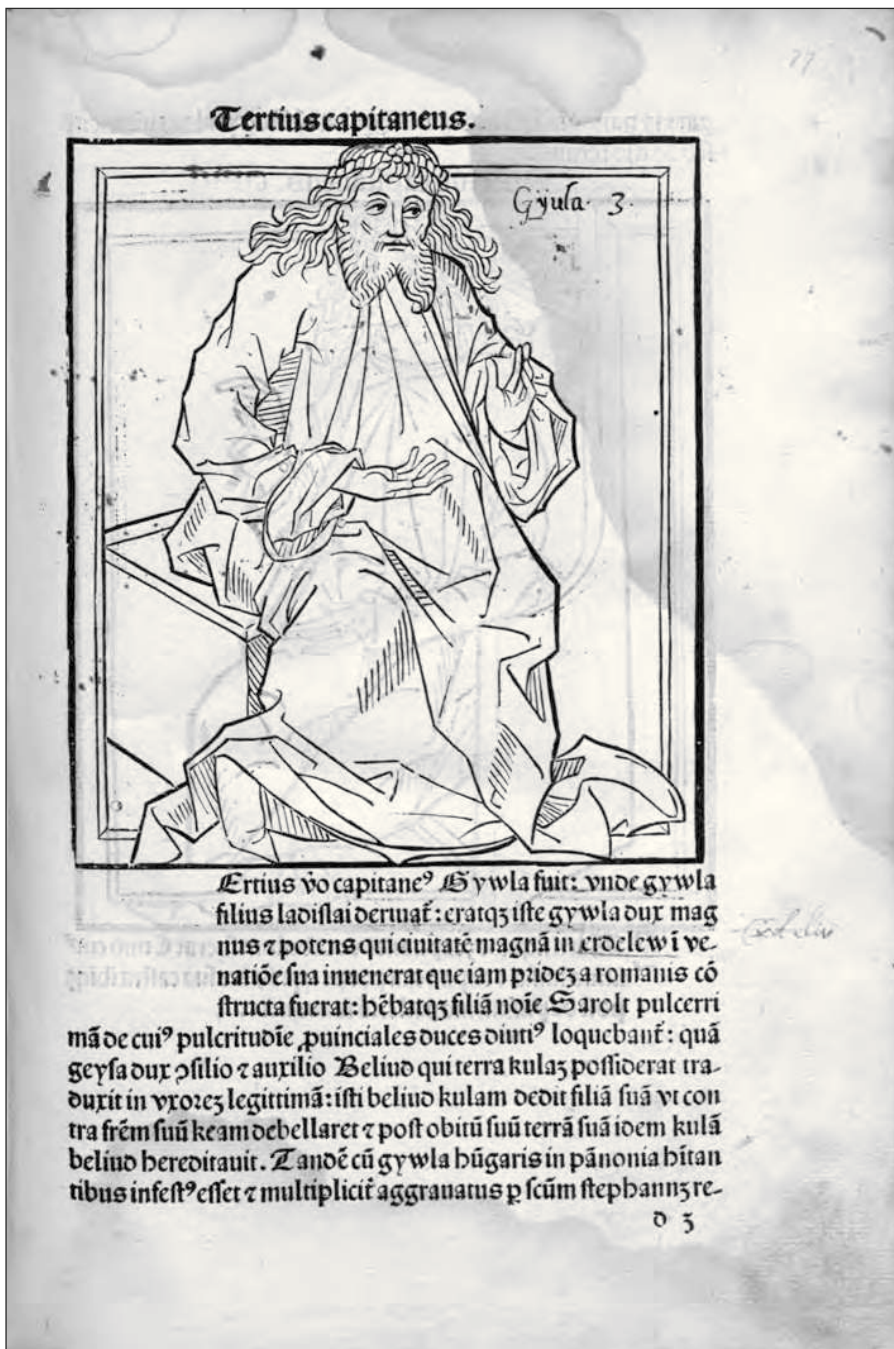 77
Tertius capitaneus.
Gÿula · 3 ·
Ertius ṽo capitaneꝰ Gywla fuit: vnde gywla
filius ladislai deriuat̃: eratqꝫ iste gywla dux mag
nus ⁊ potens qui ciuitatẽ magnã in erdelew ĩ ve-
natiõe sua inuenerat que iam prideꝫ a romanis cõ
structa fuerat: hẽbatqꝫ filiã noĩe Sarolt pulcerri
mã de cuiꝰ pulcritudĩe ꝓuinciales duces diutiꝰ loquebant̃: quã
geysa dux ↄsilio ⁊ auxilio Beliud qui terra kulaꝫ possiderat tra-
duxit in vxoreꝫ legittimã: isti beliud kulam dedit filiã suã vt con
tra frẽm suũ keam debellaret ⁊ post obitũ suũ terrã suã idem kulã
beliud hereditauit. Tandẽ cũ gywla hũgaris in pãnonia hĩtan
tibus infestꝰ esset ⁊ multiplicit̃ aggrauatus ꝑ scũm stephannꝫ re-
d 3